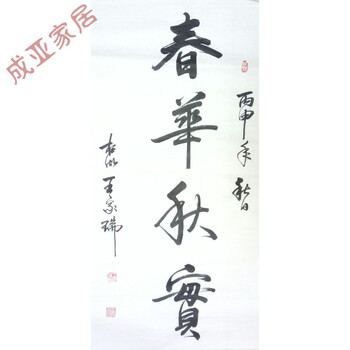 成亚家居
丙申年秋日
春華秋實
王家瑞